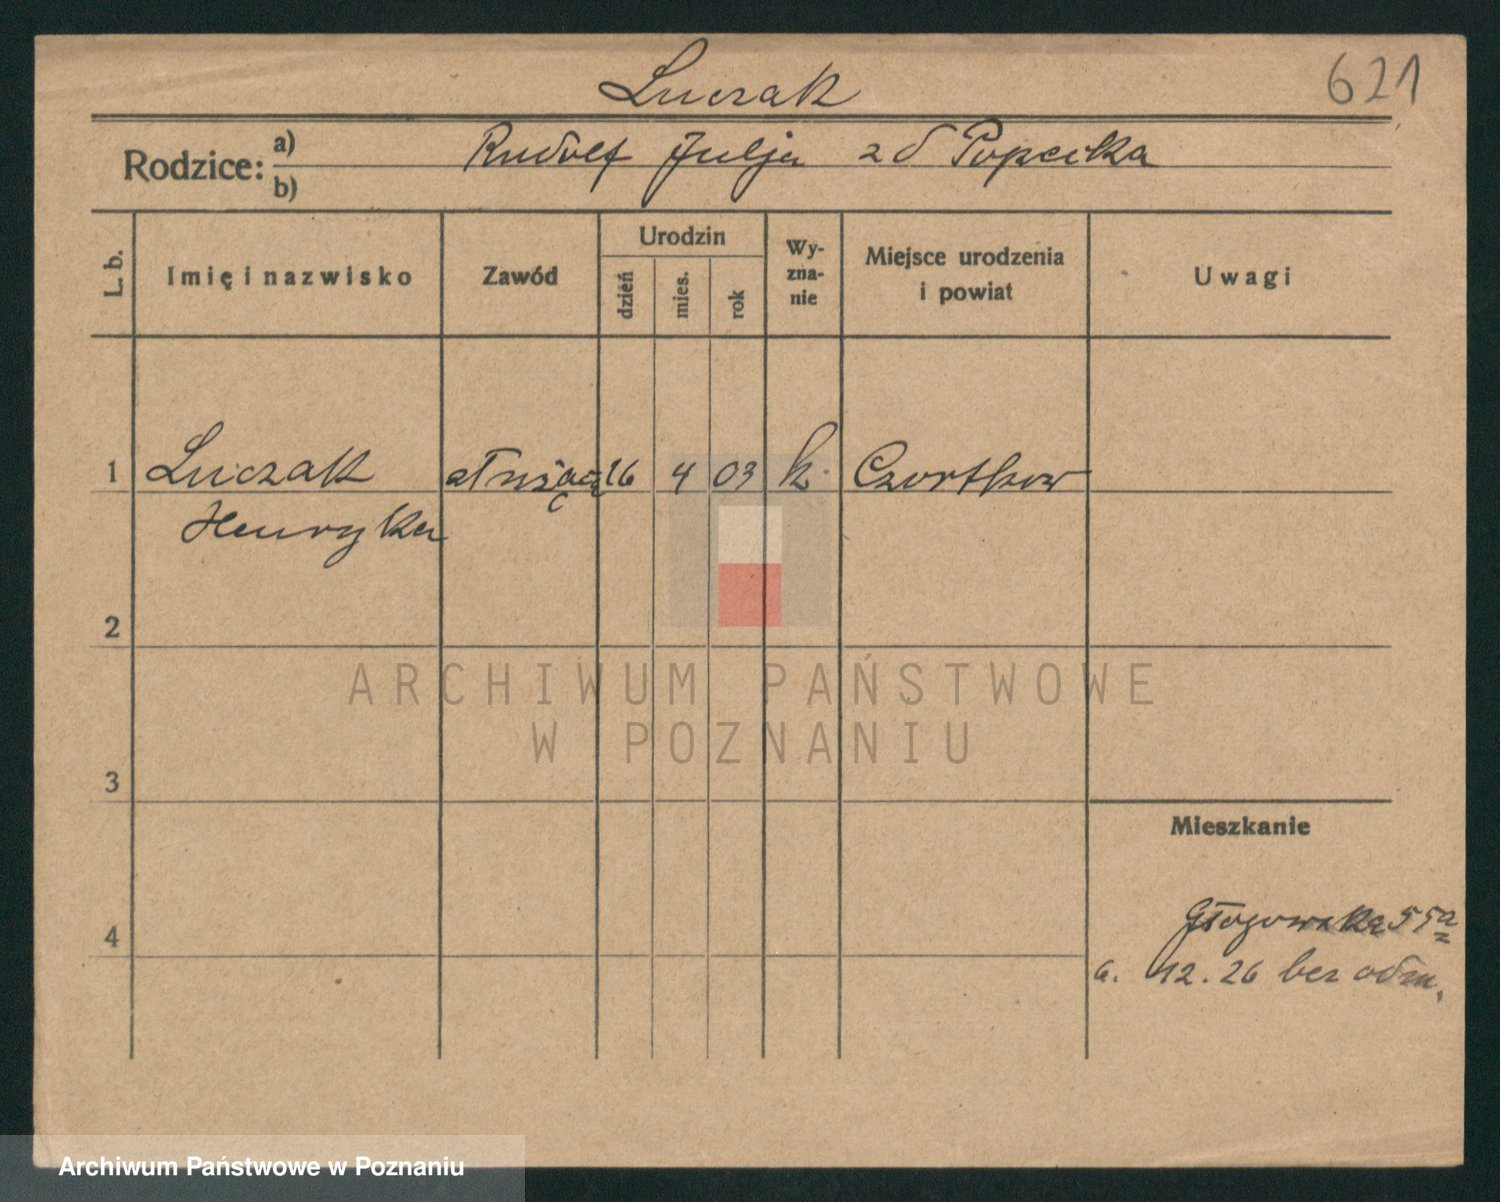 Luczak 621
Rodzice: a) Rudolf Julja zd Popecka
b)
L. b. Imię i nazwisko Zawód Urodzin dzień mies. rok Wy-zna-nie Miejsce urodzenia i powiat Uwagi
1 Luczak służąca 16 4 03 k. Czortkow
Henryka
2
ARCHIWUM PAŃSTWOWE
W POZNANIU
3
Mieszkanie
4 Głogowska 55a
6. 12. 26 bez odm.
Archiwum Państwowe w Poznaniu